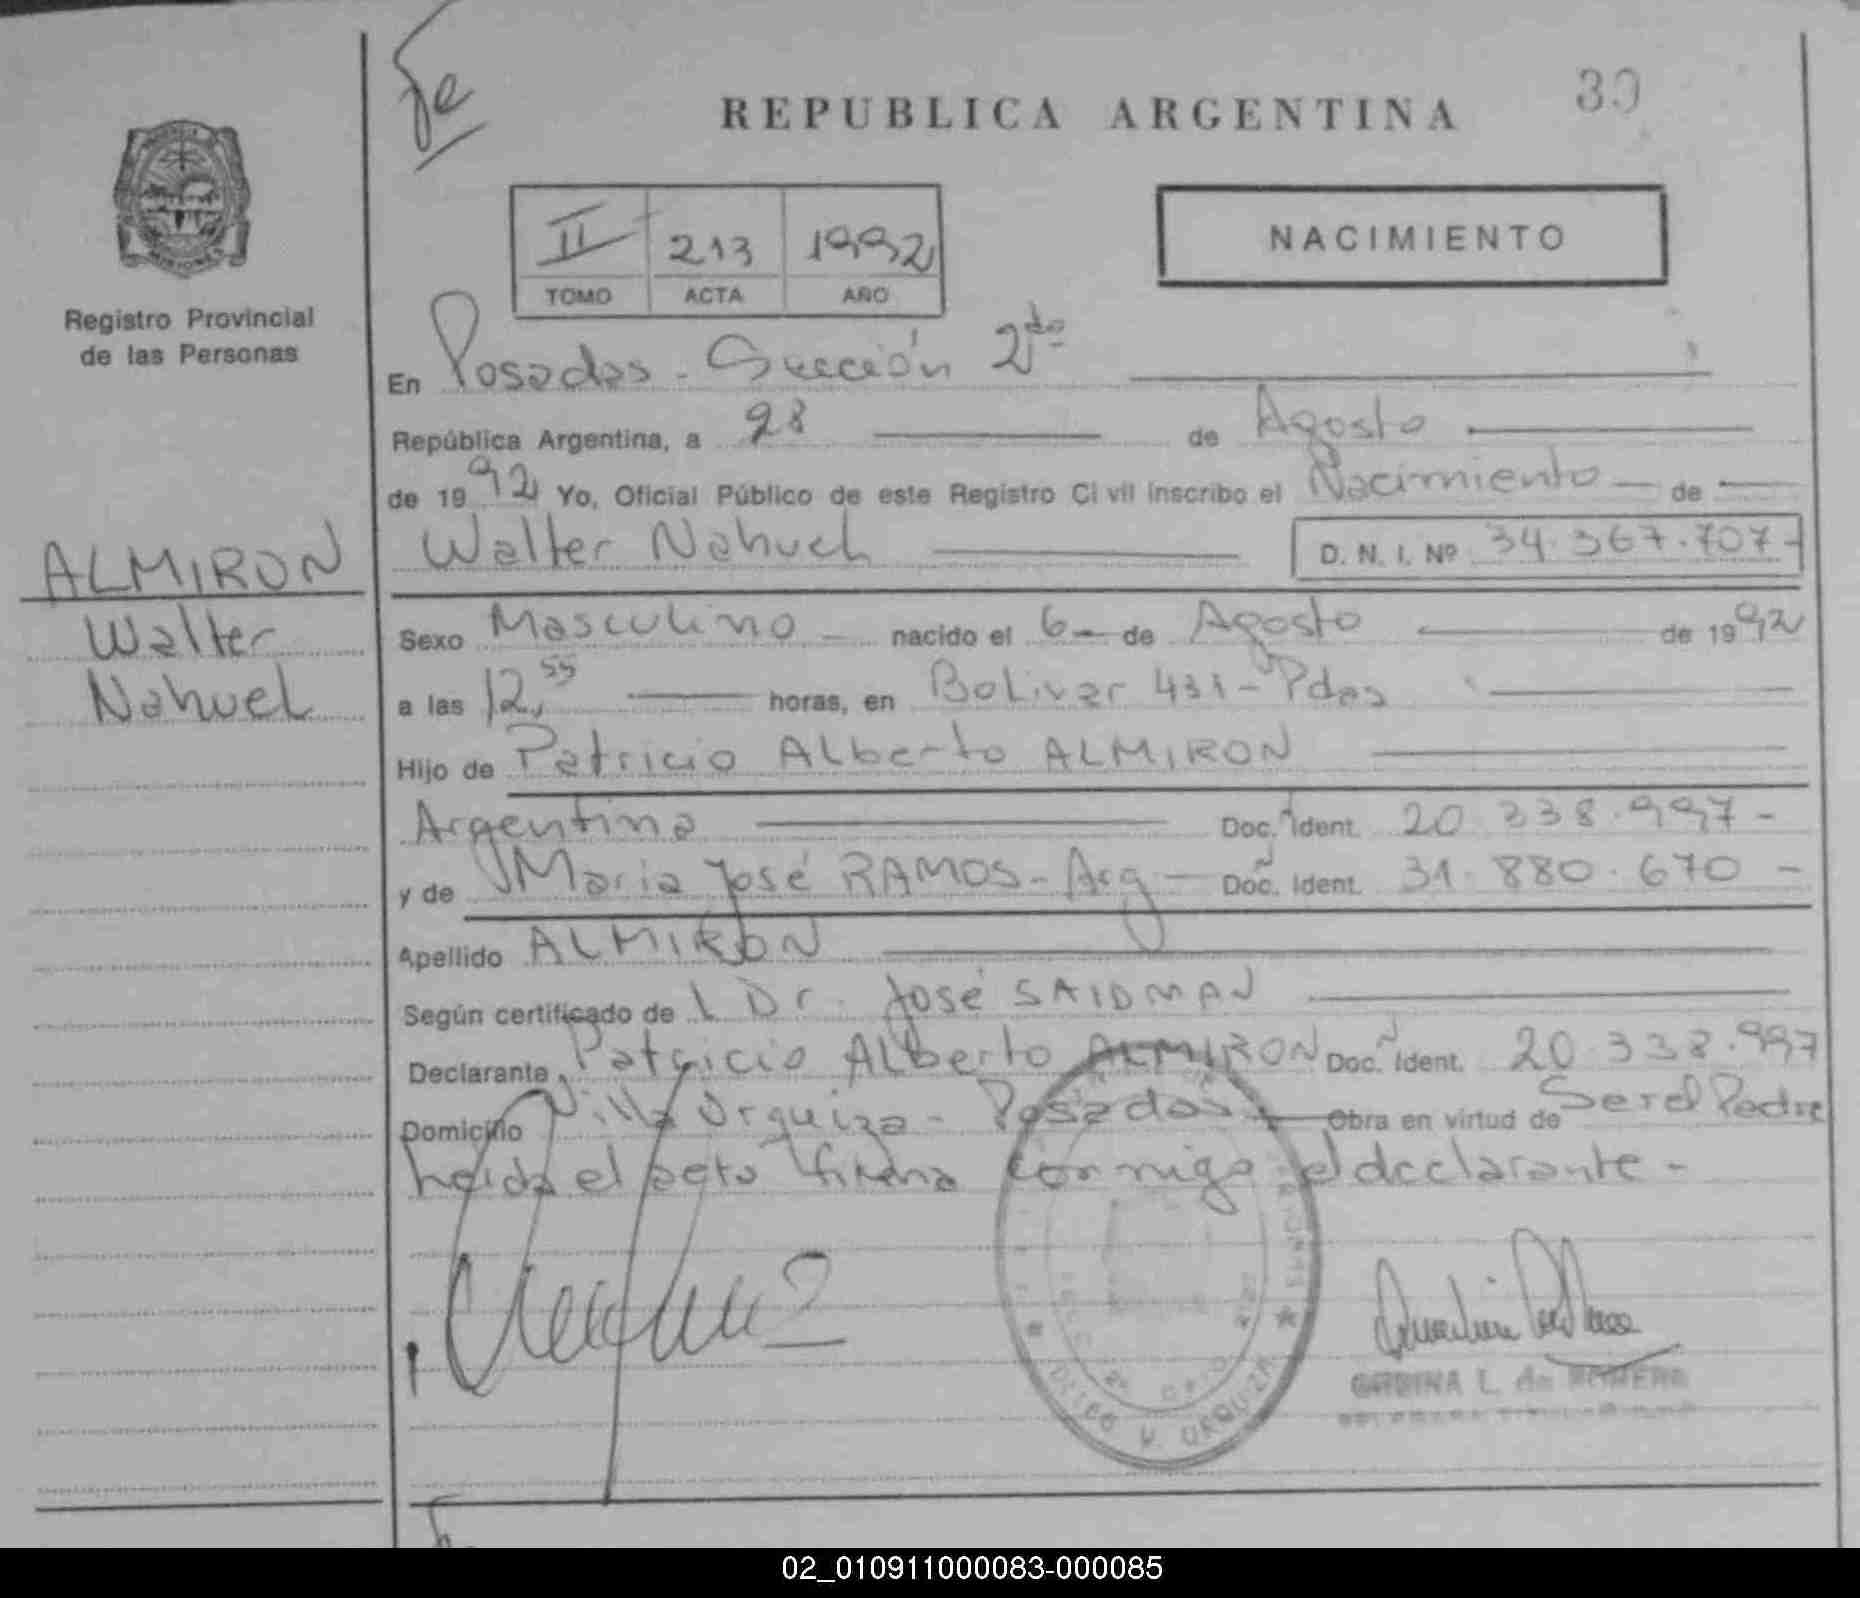 Fe
39
REPUBLICA ARGENTINA
MISIONES
Registro Provincial
de las Personas
II 213 1992
TOMO ACTA AÑO
NACIMIENTO
En Posadas - Sección 2da
República Argentina, a 28 de Agosto
de 1992 Yo, Oficial Público de este Registro Civil inscribo el Nacimiento de
ALMIRON
Walter
Nahuel
Walter Nahuel D. N. I. Nº 34.367.707-
Sexo Masculino nacido el 6 de Agosto de 1992
a las 12,55 horas, en Bolivar 431 - Pdas
Hijo de Patricio Alberto ALMIRON
Argentina Doc. Ident. 20.338.997-
y de Maria José RAMOS - Arg Doc. Ident. 31.880.670-
Apellido ALMIRON
Según certificado de l Dr. José SAIDMAN
Declarante Patricio Alberto ALMIRON Doc. Ident. 20.338.997
Domicilio Villa Urquiza - Posadas Obra en virtud de Ser el Padre
heida el acta firma conmigo el declarante -
MISIONES
V. URQUIZA
L. de ROMERO
02_010911000083-000085